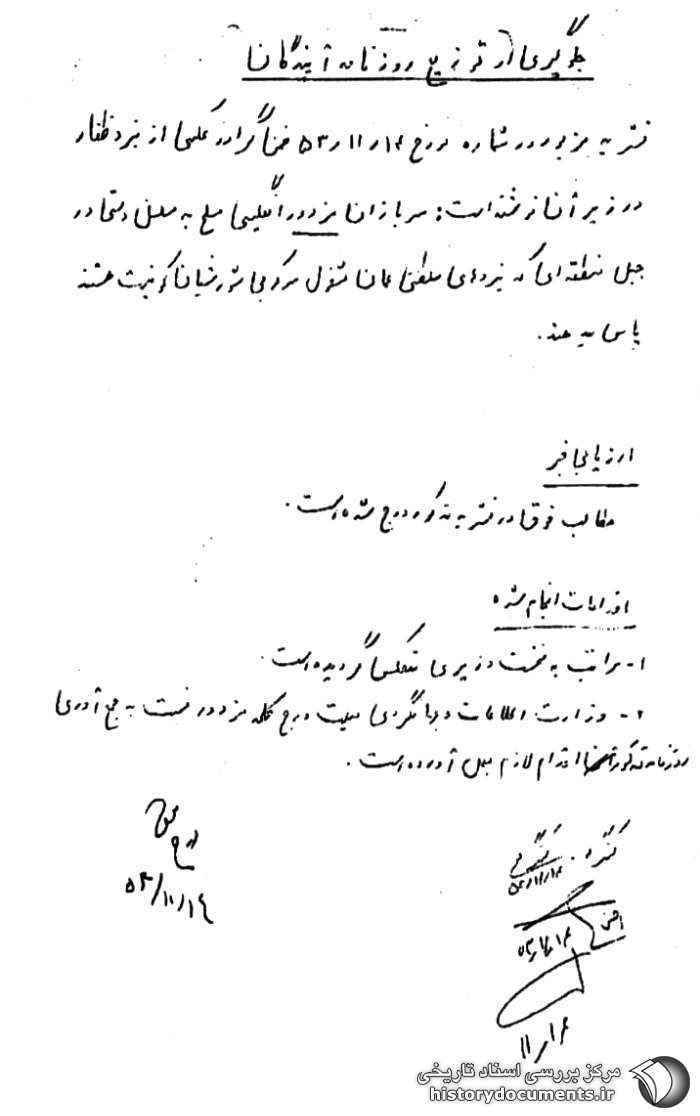 جلوگیری از توزیع روزنامه آیندگان
نشریه مزبور در شماره مورخ ۱۴ر۱۱ر۵۳ ضمن گراور عکسی از نبرد ظفار
در زیر آن نوشته است: سربازان مزدور انگلیسی مسلح به مسلسل دستی در
جبل منطقه‌ای که نیروهای سلطنتی عمان مشغول سرکوبی شورشیان کمونیست هستند
پاس میدهند.
ارزیابی خبر
مطالب فوق در نشریه مذکور درج شده است.
اقدامات انجام شده
۱- مراتب به نخست وزیری منعکس گردیده است.
۲- وزارت اطلاعات و جهانگردی بعلت درج کلمه مزدور نسبت به جمع آوری
روزنامه مذکور اقدام لازم بعمل آورده است.
۱۴ر۱۱
مرکز بررسی اسناد تاریخی
historydocuments.ir